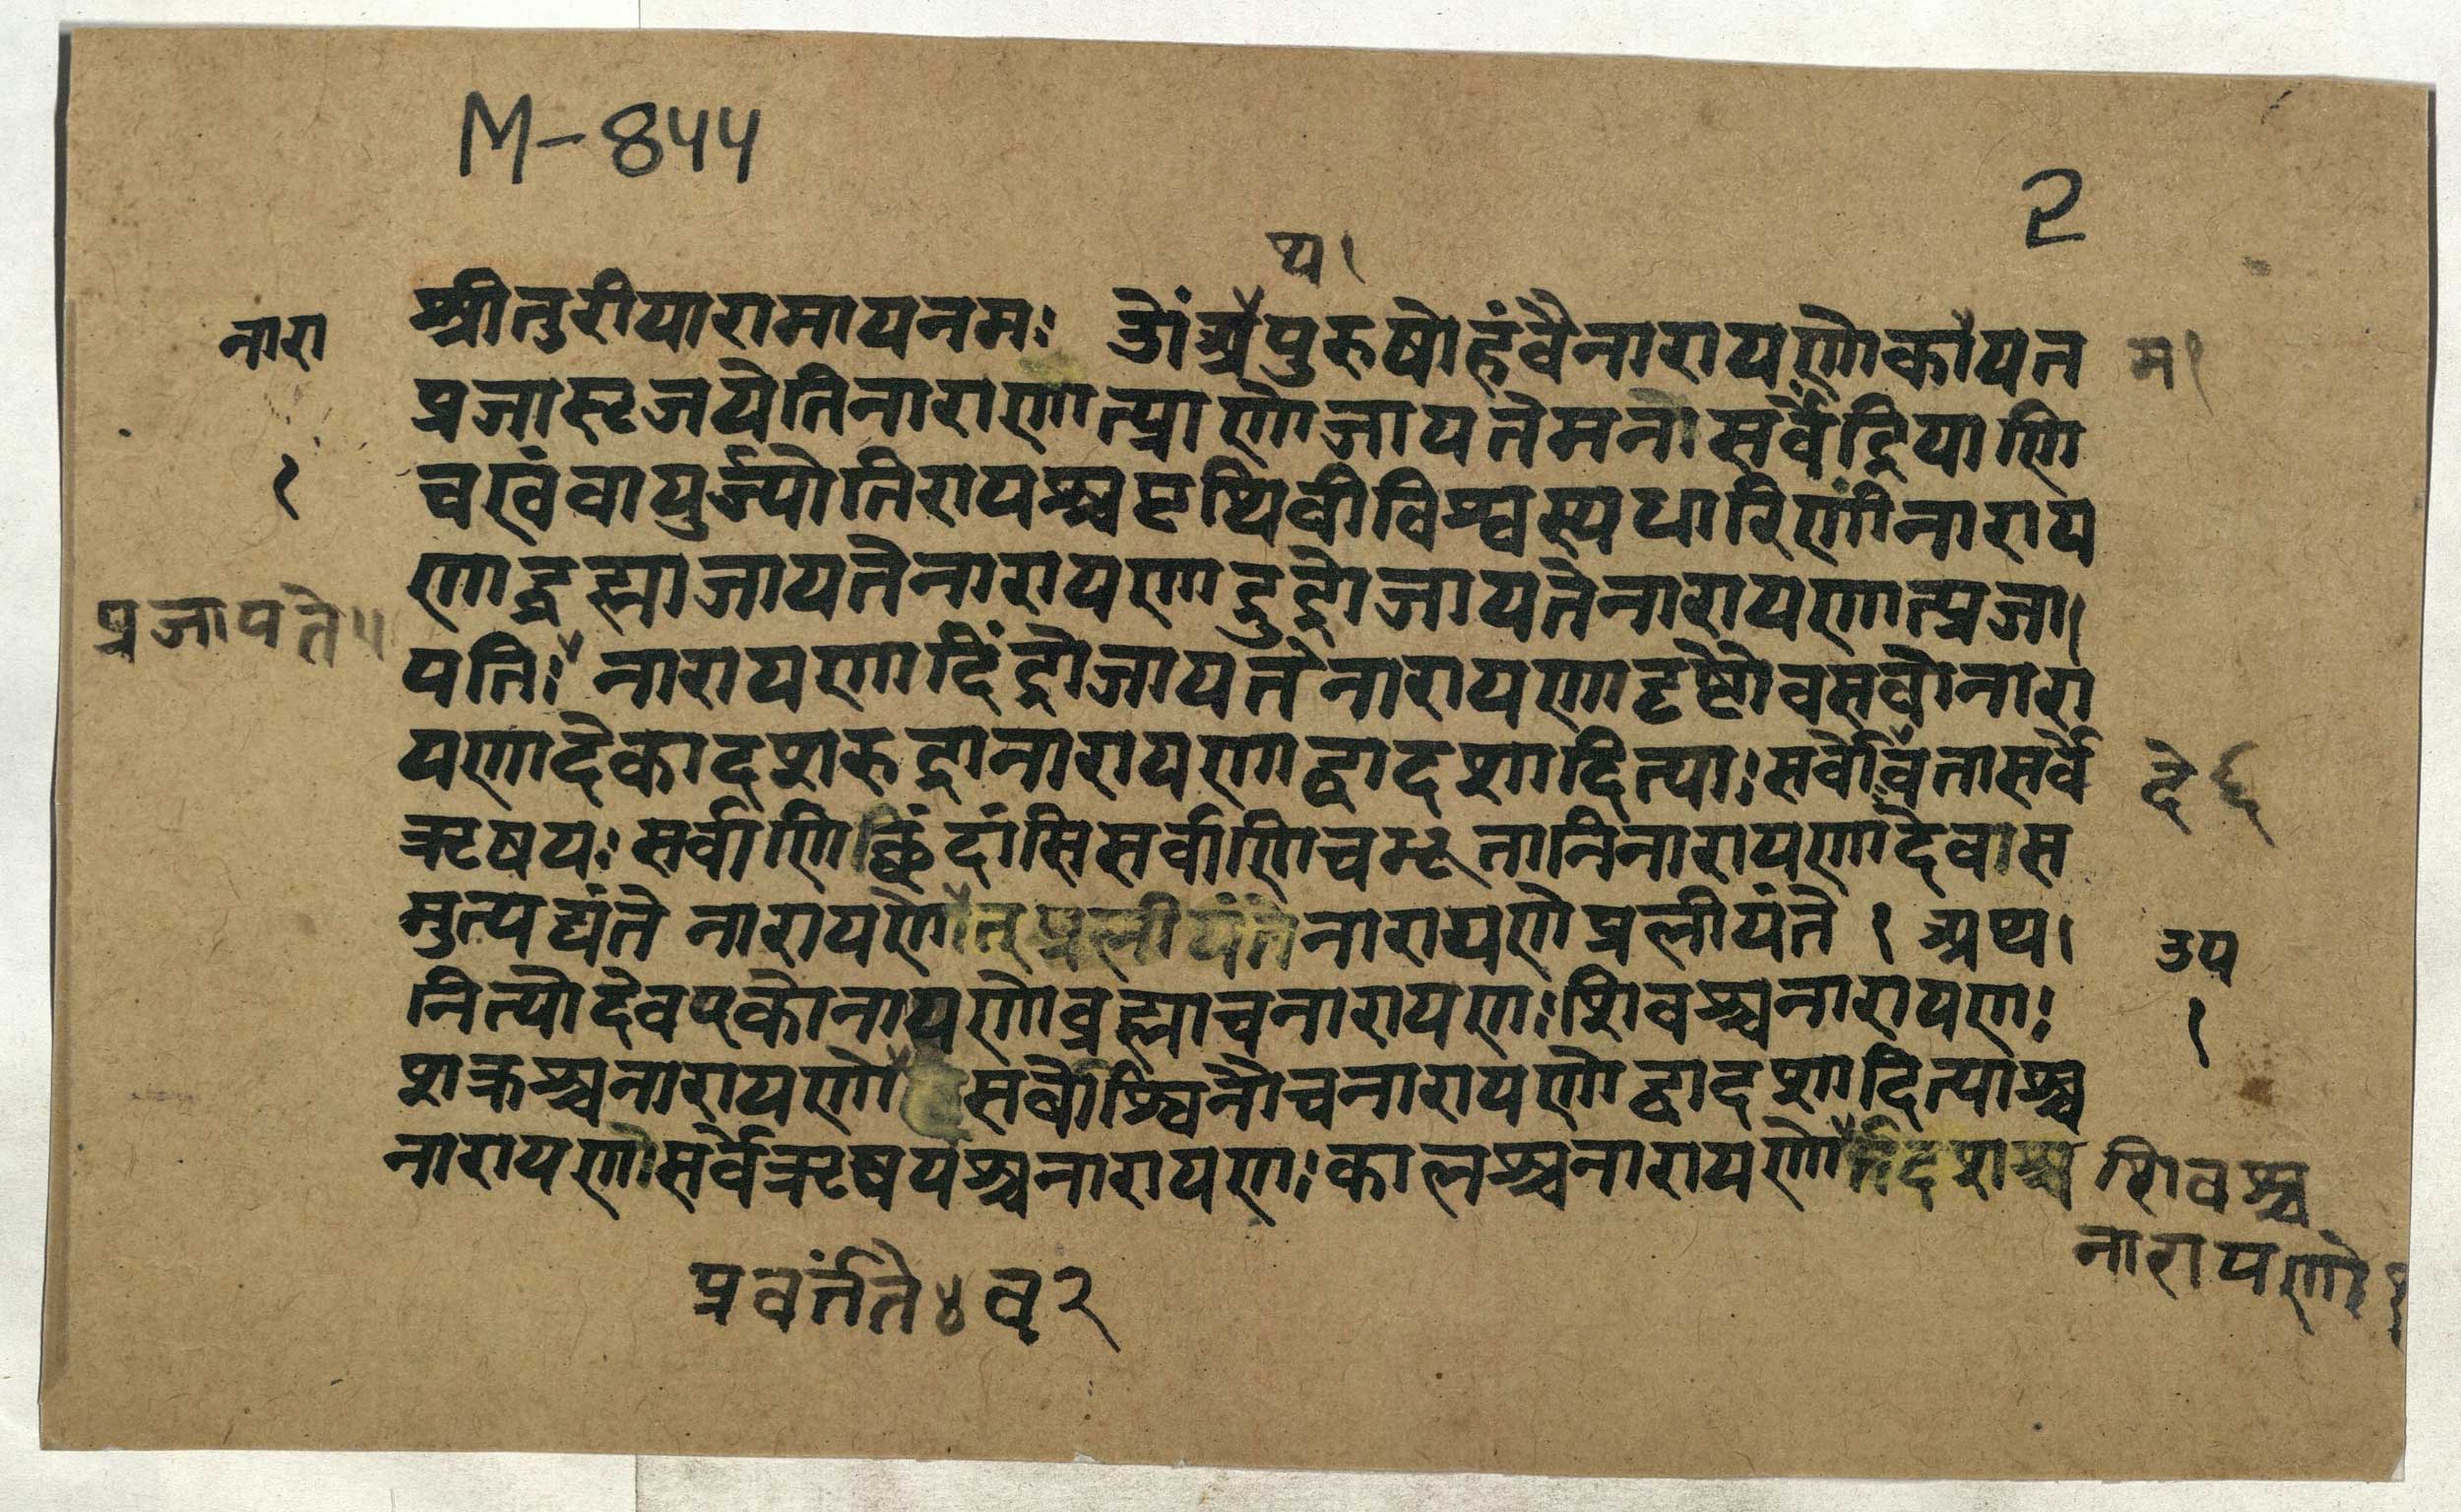 M-844
2
थ।
नारा
श्रीतुरीयारामायनमः ओंअपुरुषोहंवैनारायणोकायत
म।
प्रजासृजयेतिनाराणात्प्राणोजायतेमनोसर्वेंद्रियाणि
१
चखंवायुर्ज्योतिरापश्चपृथिवीविश्वस्यधारिणींनाराय
णाद्ब्रह्माजायतेनारायणाद्रुद्रोजायतेनारायणात्प्रजा।
प्रजापते॥
पतिः नारायणादिंद्रोजायतेनारायणादष्टोवसवोनारा
यणादेकादशरुद्रानारायणाद्वादशादित्याः सर्वेवितासर्वे
दे
ऋषयः सर्वाणिछंदांसिसर्वाणिचभूतानिनारायणादेवास
मुत्पद्यंते नारायणात्प्रलीयंतेनारायणेप्रलीयंते। अथ।
उप
नित्योदेवएकोनायणोब्रह्माचनारायणः शिवश्चनारायणः
१
शक्रश्चनारायणो सर्वोश्विनौचनारायणोद्वादशादित्याश्च
नारायणोसर्वेऋषयश्चनारायणः कालश्चनारायणो दिशश्च
शिवश्च
नारायणो।
प्रवर्तते ४ व २